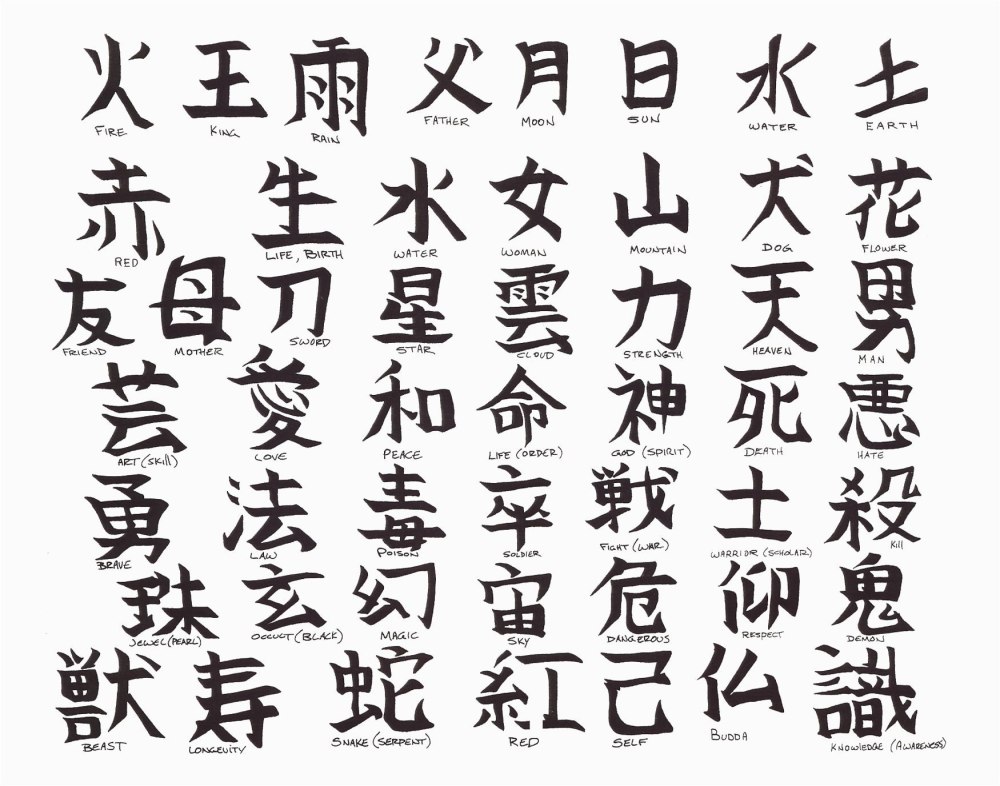 火 王 雨 父 月 日 水 土
FIRE KING RAIN FATHER MOON SUN WATER EARTH
赤 生 水 女 山 犬 花
RED LIFE, BIRTH WATER WOMAN MOUNTAIN DOG FLOWER
友 母 刀 星 雲 力 天 男
FRIEND MOTHER SWORD STAR CLOUD STRENGTH HEAVEN MAN
芸 愛 和 命 神 死 悪
ART (SKILL) LOVE PEACE LIFE (ORDER) GOD (SPIRIT) DEATH HATE
勇 法 毒 卒 戦 士 殺
BRAVE LAW POISON SOLDIER FIGHT (WAR) WARRIOR (SCHOLAR) Kill
珠 玄 幻 宙 危 仰 鬼
JEWEL (PEARL) OCCULT (BLACK) MAGIC SKY DANGEROUS RESPECT DEMON
獣 寿 蛇 紅 己 仏 識
BEAST LONGEVITY SNAKE (SERPENT) RED SELF BUDDA KNOWLEDGE (AWARENESS)